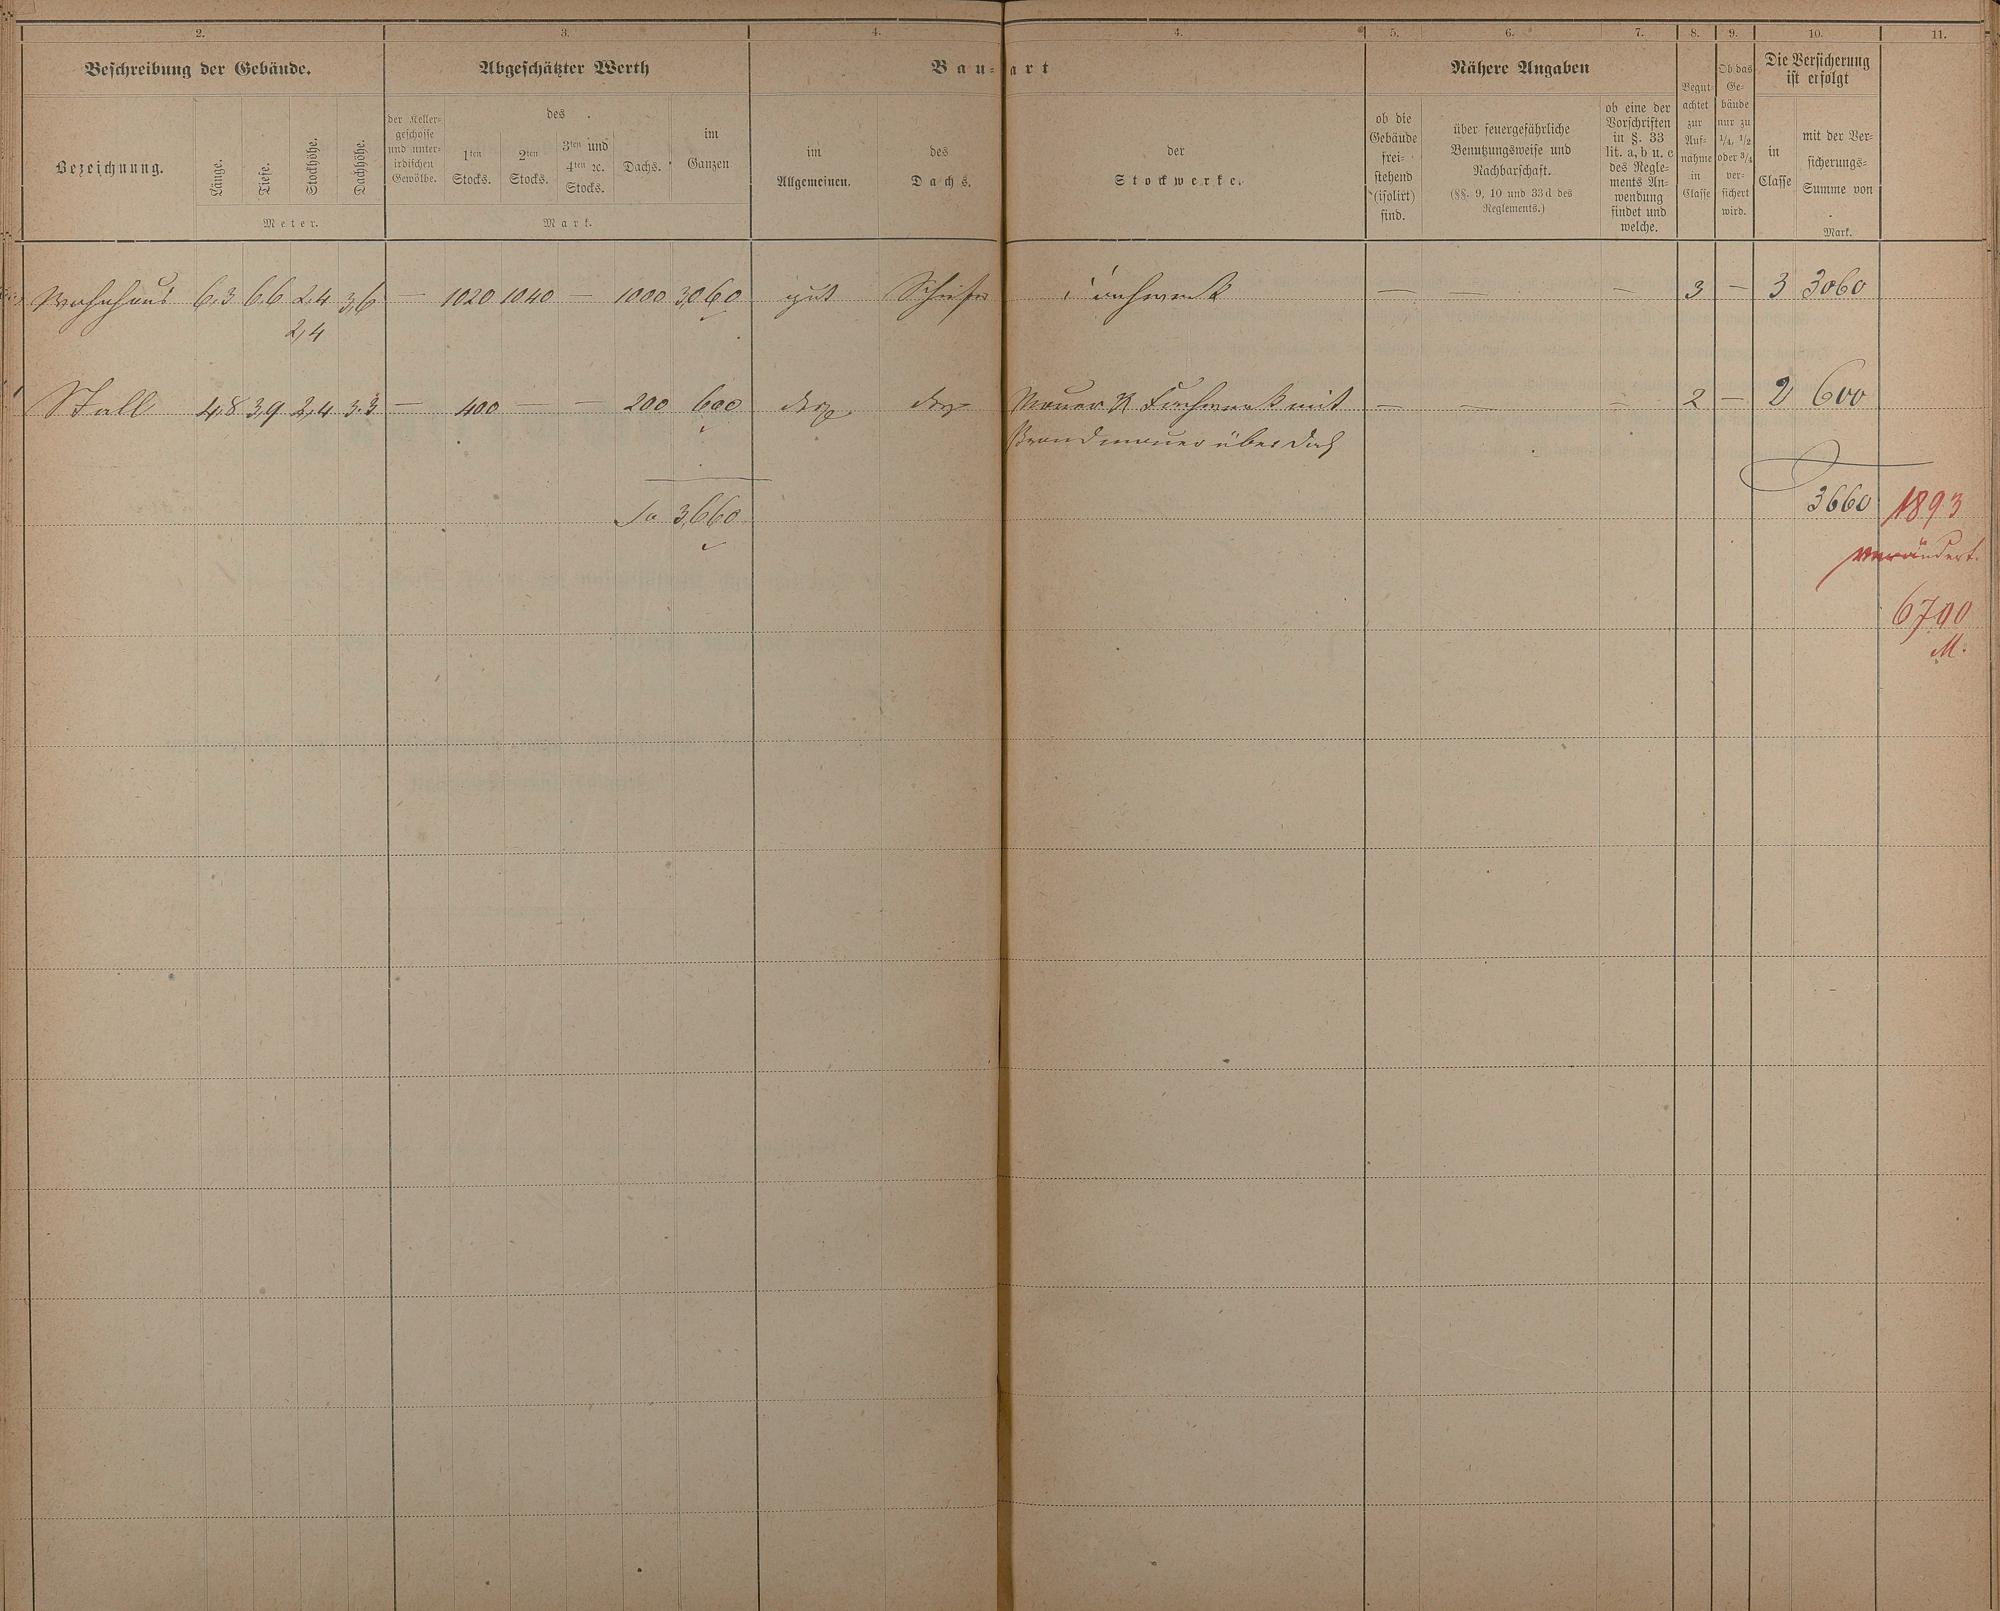 2. 3. 4. 4. 5. 6. 7. 8. 9. 10. 11.
Beschreibung der Gebäude. Abgeschätzter Werth Bau=art Nähere Angaben
Bezeichnung.
Länge.
Tiefe.
Stockhöhe.
Dachhöhe.
Meter.
der Keller=
geschosse
und unter=
irdischen
Gewölbe.
des
1ten
Stocks.
2ten
Stocks.
3ten und
4ten 2c.
Stocks.
Dachs.
im
Ganzen
Mark.
im
Allgemeinen.
des
Dachs.
der
Stockwerke.
ob die
Gebäude
frei=
stehend
(isolirt)
sind.
über feuergefährliche
Benutzungsweise und
Nachbarschaft.
(§§. 9, 10 und 33 d des
Reglements.)
ob eine der
Vorschriften
in §. 33
lit. a, b u. c
des Regle=
ments An=
wendung
findet und
welche.
Begut=
achtet
zur
Auf=
nahme
in
Classe
Ob das
Ge=
bäude
nur zu
1/4, 1/2
oder 3/4
ver=
sichert
wird.
Die Versicherung
ist erfolgt
in
Classe
mit der Ver=
sicherungs=
Summe von
Mark.
Wohnhaus 6,3 6,6 2,4 3,6 — 1020 1040 — 1000 3060 gut Schiefer Fachwerk — — — 3 — 3 3060
2,4
Stall 4,8 3,9 2,4 3,3 — 400 — — 200 600 Mauer & Fachwerk mit — — — 2 — 2 600
Brandmauer über Dach
Sa 3,660 3660 1893
verändert.
6700
M.